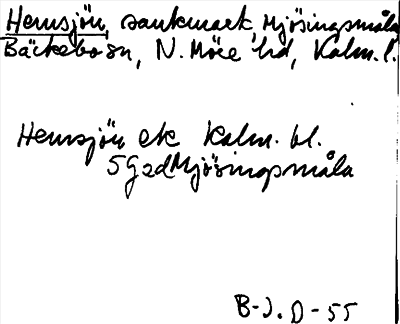 Hemsjön, sankmark, Mjösingsmåla
Bäckebo sn, N. Möre hd, Kalm. l.
Hemsjön ek Kalm. bl.
5 Mjösingsmåla
B-J. D-55